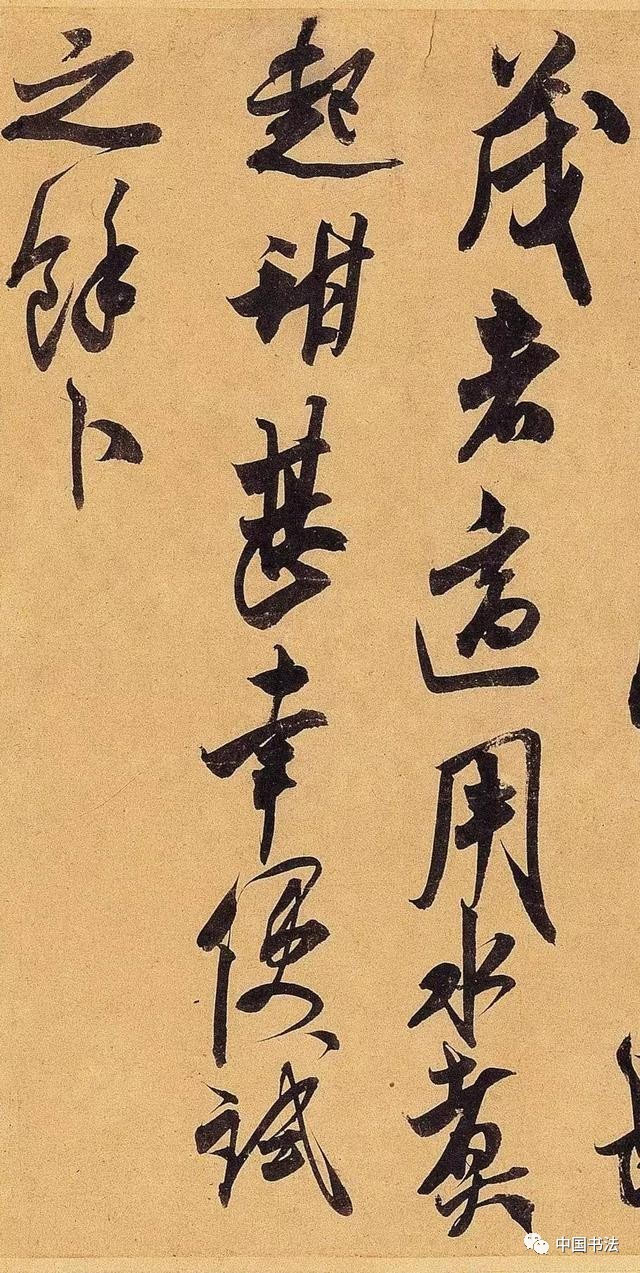 茂者適用水煮
起甜甚幸便試
之餘卜
中国书法